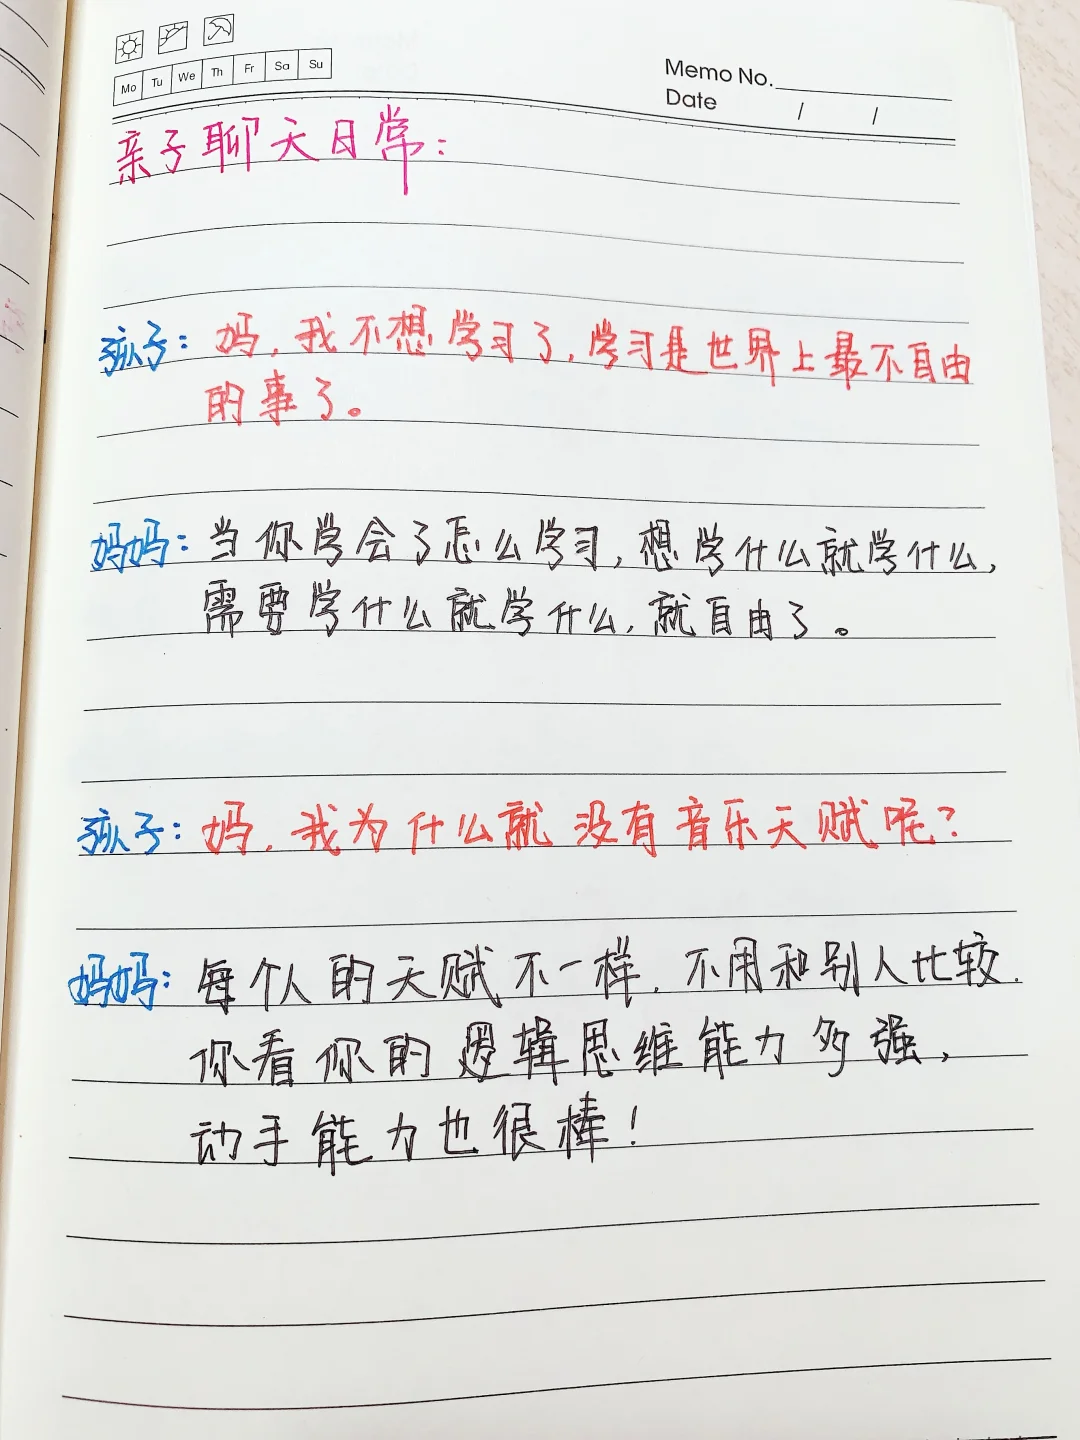 Mo Tu We Th Fr Sa Su
Memo No.
Date / /
亲子聊天日常：
孩子：妈，我不想学习了，学习是世界上最不自由
的事了。
妈妈：当你学会了怎么学习，想学什么就学什么，
需要学什么就学什么，就自由了。
孩子：妈，我为什么就没有音乐天赋呢？
妈妈：每个人的天赋不一样，不用和别人比较.
你看你的逻辑思维能力多强，
动手能力也很棒！